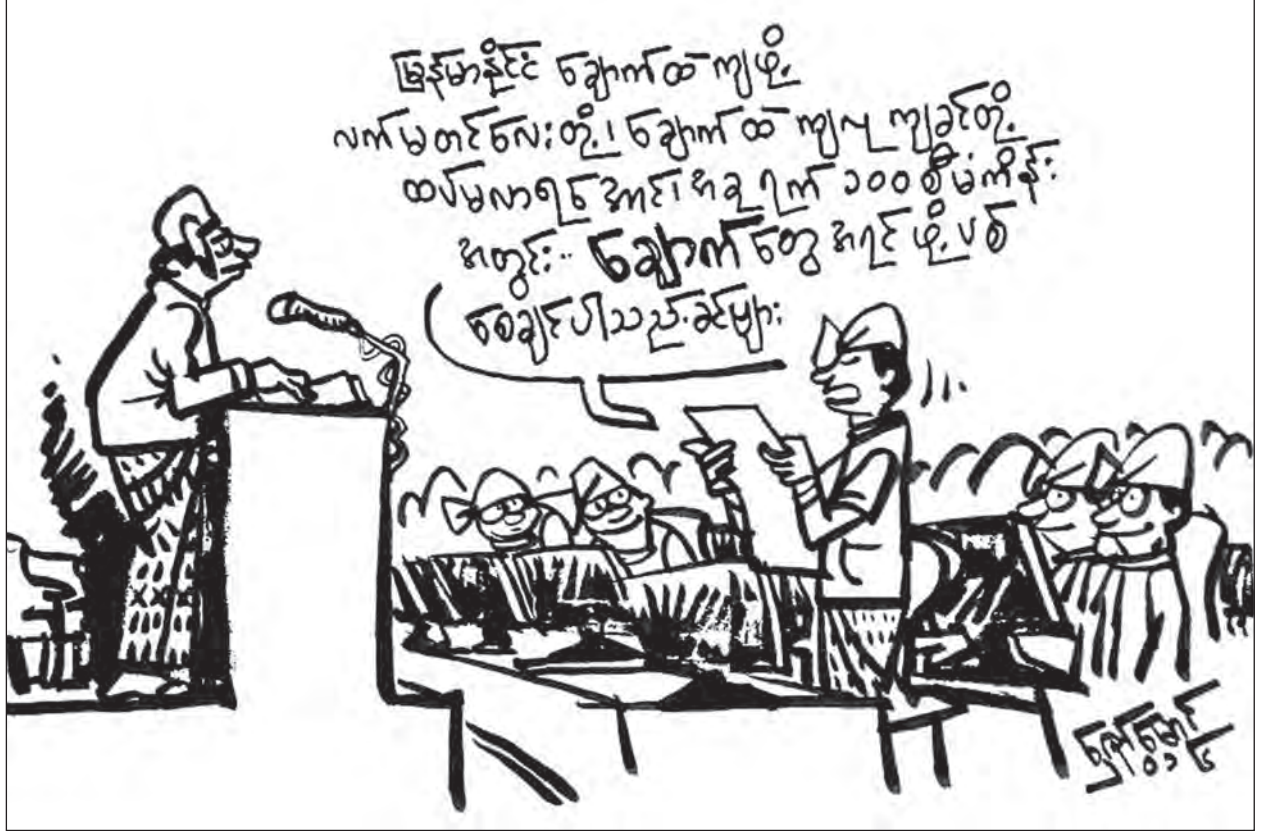 မြန်မာနိုင်ငံ ချောက်ထဲ ကျဖို့
လက်မတင်လေးတို့၊ ချောက်ထဲ ကျလု ကျခင်တို့
ထပ်မလာရအောင်၊ အခု ရက် ၁၀၀ စီမံကိန်း
အတွင်း.. ချောက်တွေ အရင် ဖို့ပစ်
စေချင်ပါသည်.ခင်ဗျား